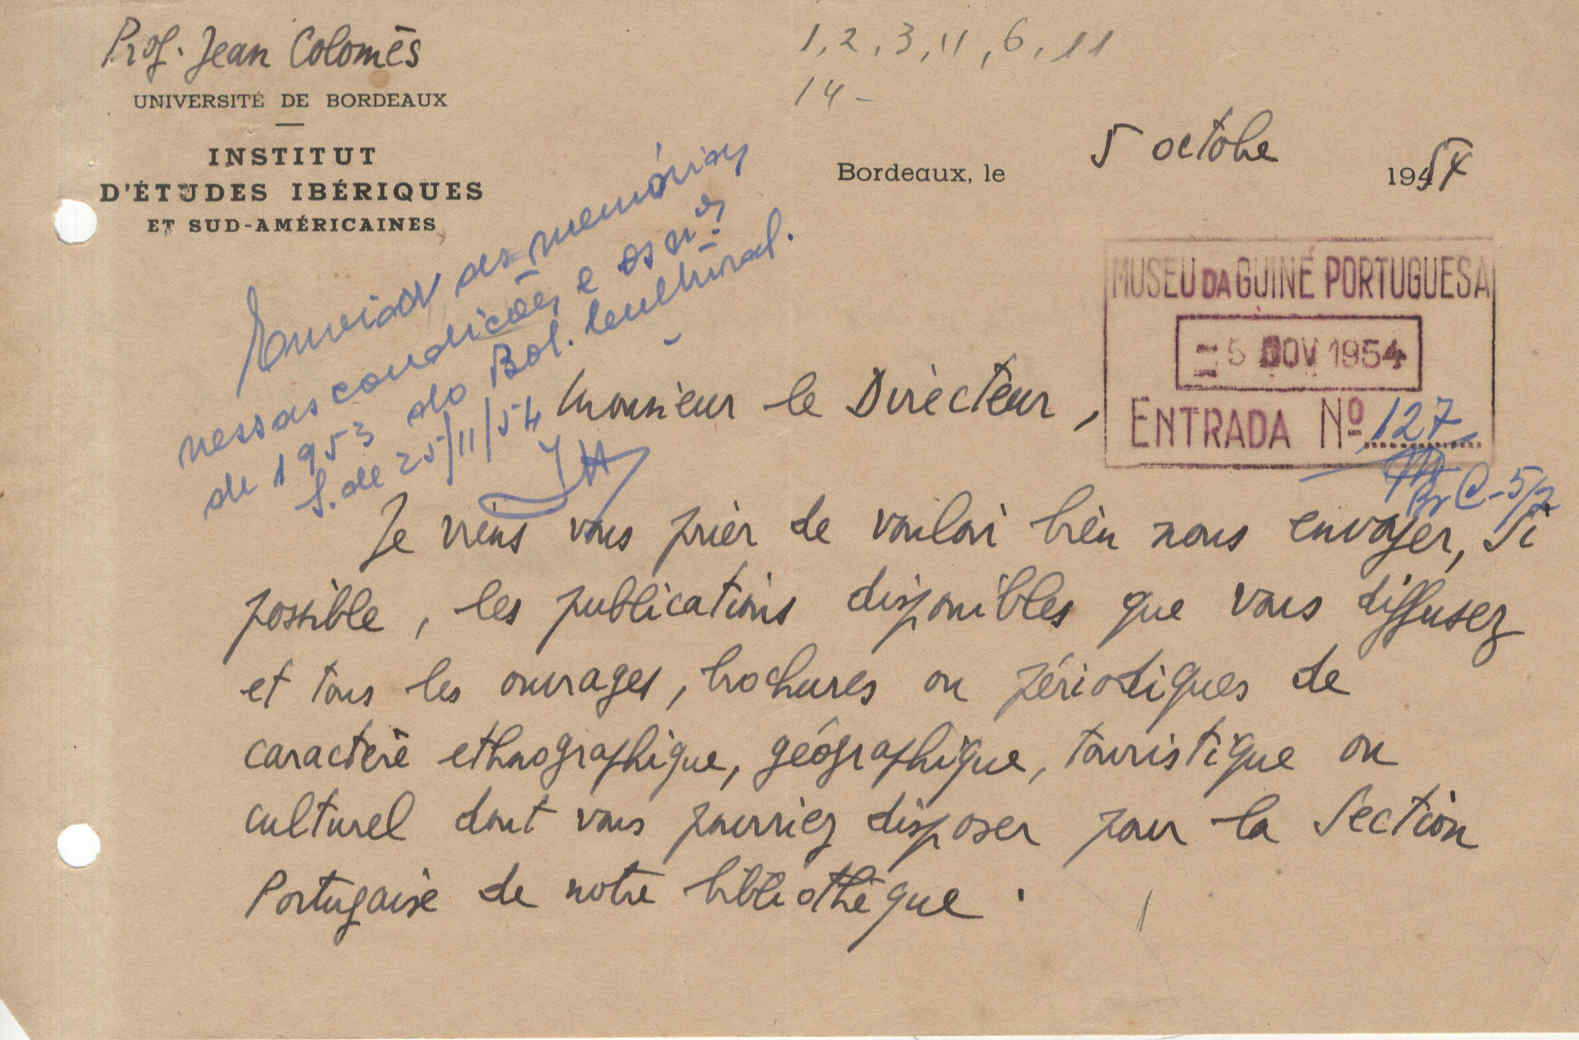 Prof. Jean Colomès
UNIVERSITÉ DE BORDEAUX
INSTITUT
D'ÉTUDES IBÉRIQUES
ET SUD-AMÉRICAINES
1, 2, 3, 4, 6, 11
14 -
Bordeaux, le 5 octobre 1954
Enviar as memórias
nessas condições e os nos
de 1953 do Bol. Cultural.
S. de 25/11/54
MUSEU DA GUINÉ PORTUGUESA
5 NOV 1954
ENTRADA Nº 127
C-5/2
Monsieur le Directeur,
Je viens vous prier de vouloir bien nous envoyer, si
possible, les publications disponibles que vous diffusez
et tous les ouvrages, brochures ou périodiques de
caractère ethnographique, géographique, touristique ou
culturel dont vous pourriez disposer pour la Section
Portugaise de notre bibliothèque.